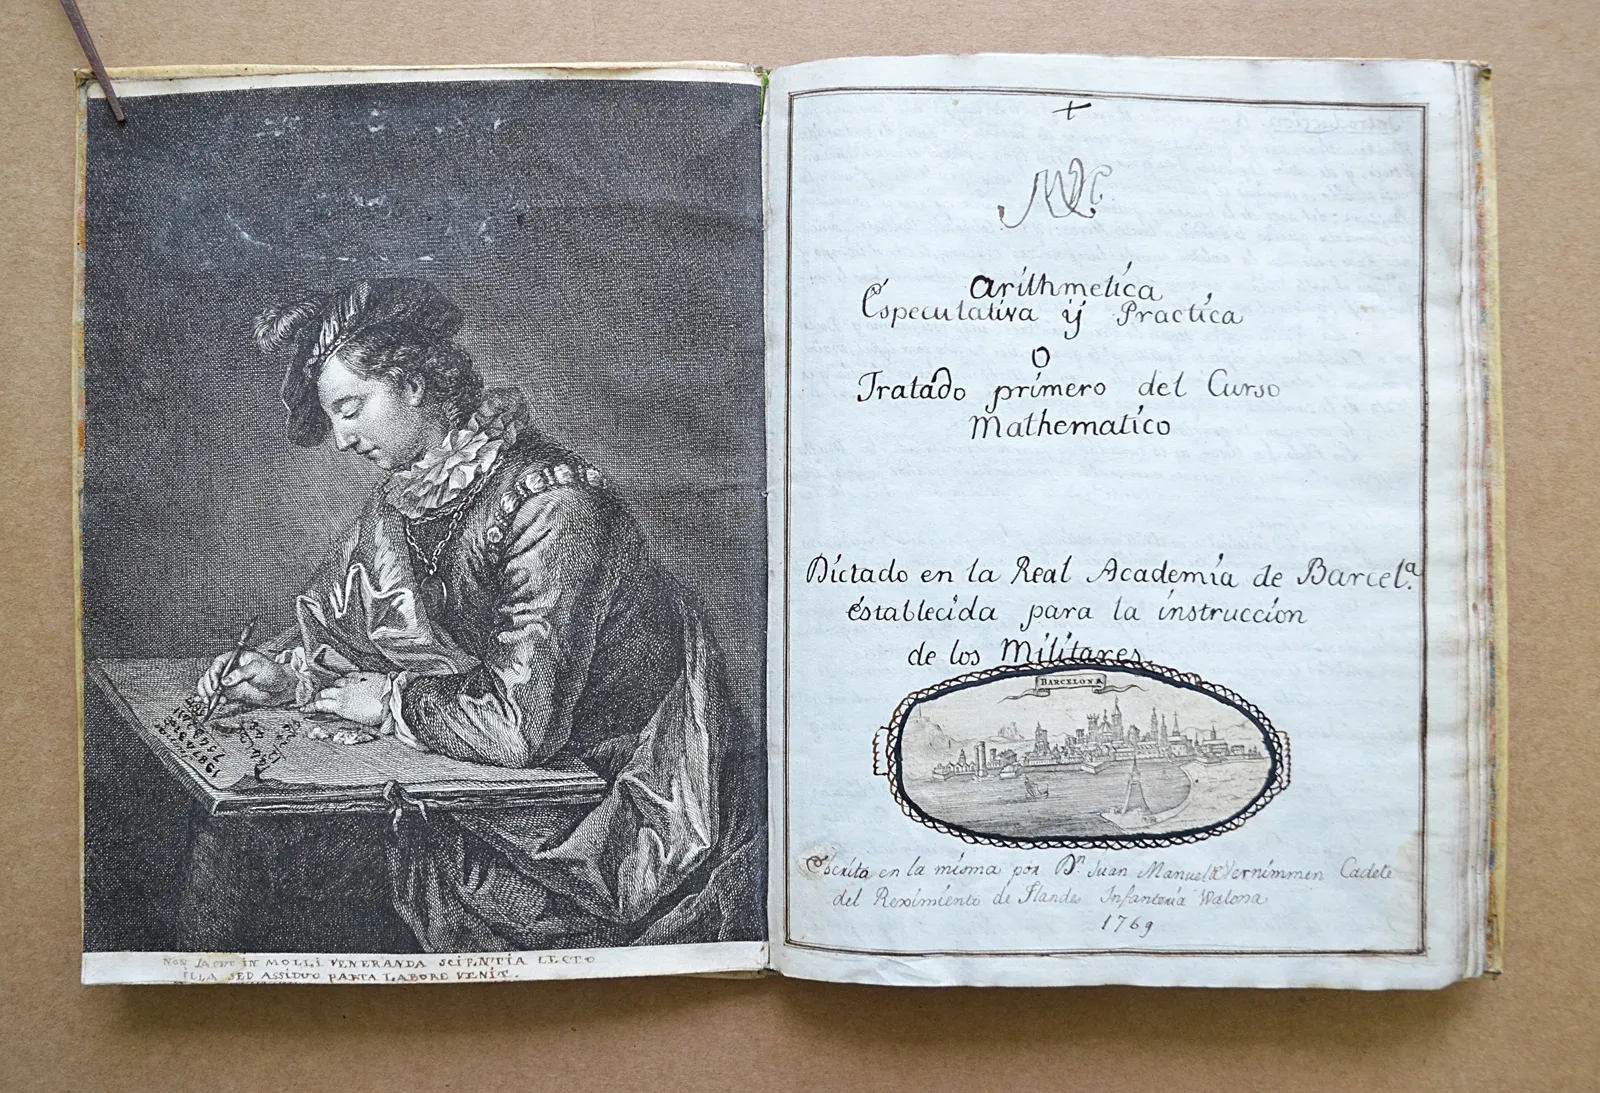 NON JACET IN MOLLI VENERANDA SCIENTIA LECTO
ILLA SED ASSIDUO PARTA LABORE VENIT.
+
Arithmetica
Especulativa ÿ Practica
O
Tratado primero del Curso
Mathematico
Dictado en la Real Academia de Barcel.ª
establecida para la instruccion
de los Militares
BARCELONA
Escrita en la misma por D.n Juan Manuel Vernimmen Cadete
del Reximiento de Flandes Infanteria Walona
1769